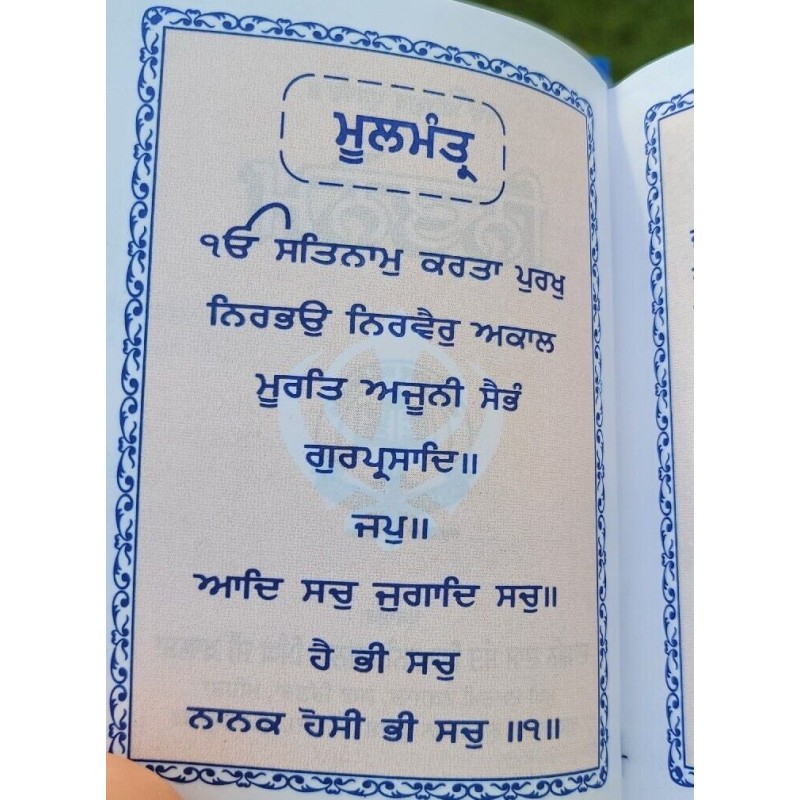 ਮੂਲਮੰਤ੍ਰ
ੴ ਸਤਿਨਾਮੁ ਕਰਤਾ ਪੁਰਖੁ
ਨਿਰਭਉ ਨਿਰਵੈਰੁ ਅਕਾਲ
ਮੂਰਤਿ ਅਜੂਨੀ ਸੈਭੰ
ਗੁਰਪ੍ਰਸਾਦਿ॥
ਜਪੁ॥
ਆਦਿ ਸਚੁ ਜੁਗਾਦਿ ਸਚੁ॥
ਹੈ ਭੀ ਸਚੁ
ਨਾਨਕ ਹੋਸੀ ਭੀ ਸਚੁ ॥੧॥